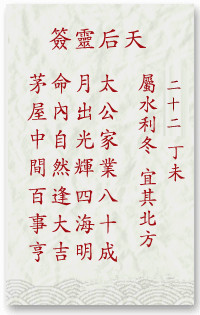 天后靈簽
二十二 丁未
屬水利冬 宜其北方
太公家業八十成
月出光輝四海明
命內自然逢大吉
茅屋中間百事亨